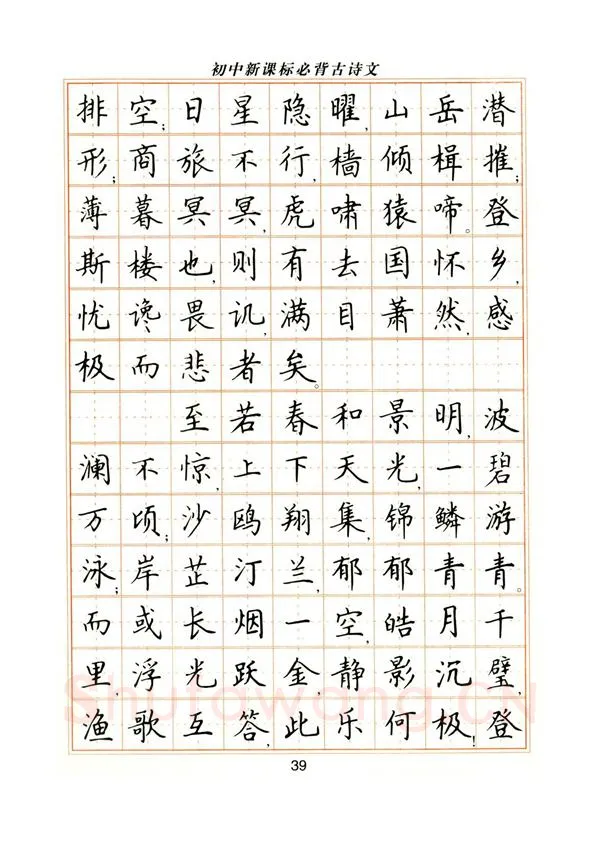 初中新课标必背古诗文
排空；日星隐曜，山岳潜
形；商旅不行，樯倾楫摧；
薄暮冥冥，虎啸猿啼。登
斯楼也，则有去国怀乡，
忧谗畏讥，满目萧然，感
极而悲者矣。
至若春和景明，波
澜不惊，上下天光，一碧
万顷；沙鸥翔集，锦鳞游
泳；岸芷汀兰，郁郁青青。
而或长烟一空，皓月千
里，浮光跃金，静影沉璧，
渔歌互答，此乐何极！登
39
Shufawang.CN